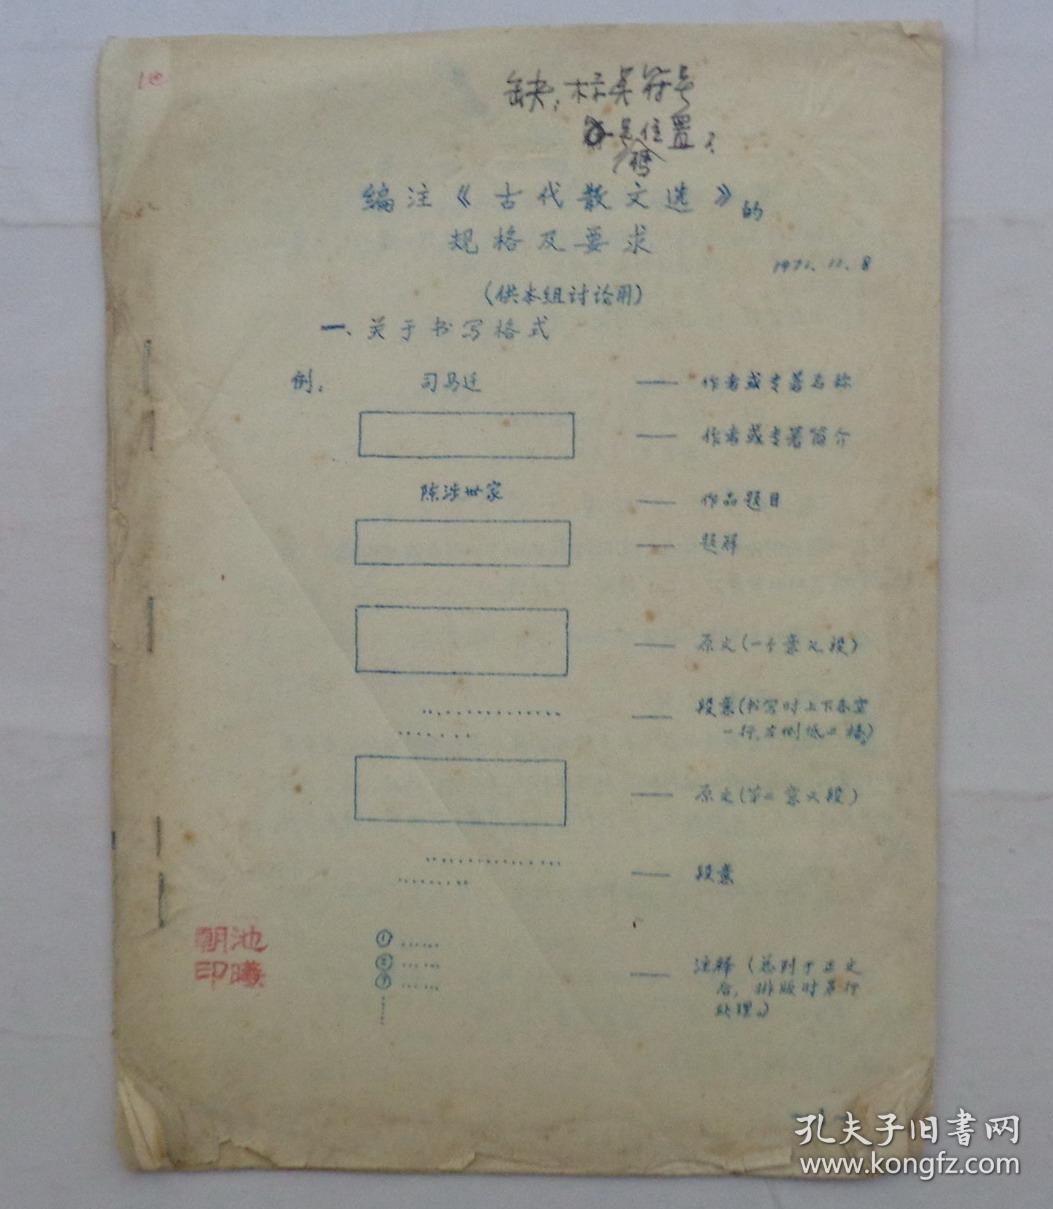 缺：标点符号
位置
编注《古代散文选》的
规格及要求
1971.11.8
（供本组讨论用）
一、关于书写格式
例： 司马迁 —— 作者或专著名称
—— 作者或专著简介
陈涉世家 —— 作品题目
—— 题解
—— 原文（一个意义段）
—— 段意（书写时上下各空
一行，左侧低二格）
—— 原文（第二意义段）
—— 段意
① ……
② ……
③ ……
—— 注释（总列于正文
后，排版时另行
处理。）
池曦
朝印
孔夫子旧书网
www.kongfz.com